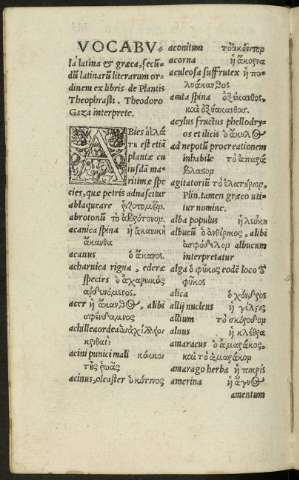 VOCABV
la latina & græca, secu̅
du̅ latinaru̅ literarum or
dinem ex libris de Plantis
Theophrasti. Theodoro
Gaza interprete.
ABies
ru est etiã
plantæ cu
iusdã ma
ritimæ spe
ciei, quæ petris adnascitur
ablaqueare
abrotonu̅ τὸ ἁβρότονομ.
acanica spina ἡ ἀκανικὴ
ἄκανθα
acanus ὁ ἄκανος.
acharnica rigna, ederæ
species ὁ ἀχαρνικός
acer ἡ alibi
σφένδαμνος
achilleaordea
acini punici mali κόκκοι
τῆς ῥοιᾶς
acinus, oleaster ὁ κότινος
aconitum τὸ ἀκόνιτομ
acorna ἡ ἄκορνα
aculeosa suffrutex ἡ πο
λυάκανθος
acuta spina ὀξύακανθος.
καὶ ὀξυάκανθος.
acylus fructus phellodry
os et ilicis ὁ ἄκυλος
ad nepotu̅ procreationem
inhabile τὸ ἄπαιδα
agitatoriu̅
Plin. tamen græco uti
tur nomine.
alba populus ἡ λεύκη
albucu̅ ὁ ἀνθέρικος, alibi
ἀσφόδελομ albucum
interpretatur
alga ὁ φύκος eodẽ loco τὸ
φύκος
alica ὁ χόνδρος
allij nucleus ἡ γέλγις
allium τὸ σκόροδομ
alnus ἡ κλήθρα
amaracus ὁ ἀμάρακος.
καὶ τὸ ἀμάρακομ
amarago herba ἡ πικρίς
amerina ἡ ἄγνος
amentum